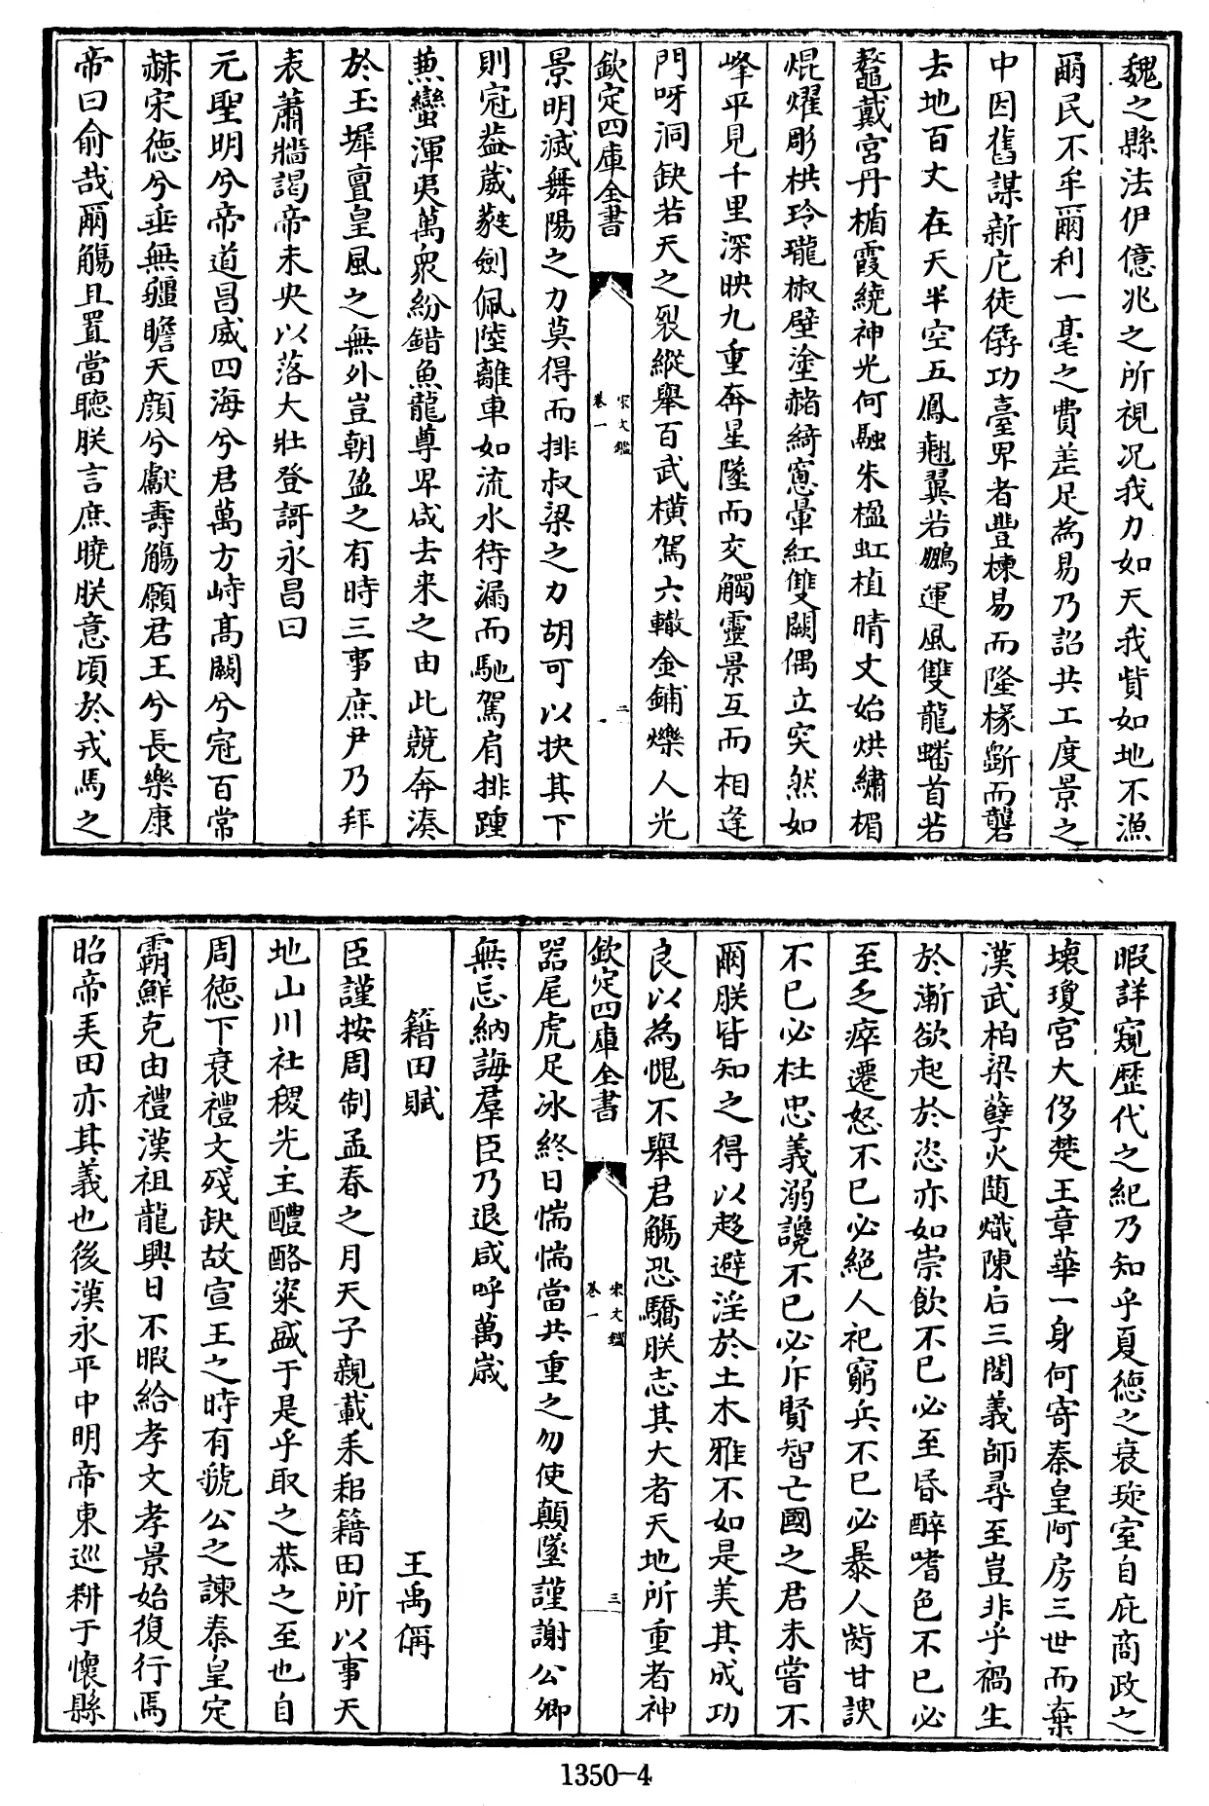 魏之縣法伊億兆之所視況我力如天我貲如地不漁
爾民不牟爾利一毫之費差足為易乃詔共工度景之
中因舊謀新庀徒僝功臺卑者豐棟易而隆椽斵而礱
去地百丈在天半空五鳳翹翼若鵬運風雙龍蟠首若
鼇戴宮丹楯霞繞神光何融朱楹虹植晴文始烘繡楣
焜燿彫栱玲瓏椒壁塗赭綺窻暈紅雙闕偶立突然如
峰平見千里深映九重奔星墜而交觸靈景互而相逢
門呀洞缺若天之裂縱舉百武橫駕六轍金鋪爍人光
欽定四庫全書
宋文鑑
卷一
二
景明滅舞陽之力莫得而排叔梁之力胡可以抉其下
則冠葢葳蕤劍佩陸離車如流水待漏而馳駕肩排踵
蕉蠻渾夷萬衆紛錯魚龍尊卑咸去来之由此競奔湊
於玉墀亶皇風之無外豈朝盈之有時三事庶尹乃拜
表蕭牆謁帝未央以落大壯登謌永昌曰
元聖明兮帝道昌威四海兮君萬方峙髙闕兮冠百常
赫宋德兮垂無疆瞻天顏兮獻壽觴願君王兮長樂康
帝曰俞哉爾觴且置當聽朕言庶曉朕意頃於戎馬之
暇詳窺歷代之紀乃知乎夏德之衰琁室自庇商政之
壞瓊宮大侈楚王章華一身何寄秦皇阿房三世而棄
漢武柏梁孽火随熾陳后三閣義師尋至豈非乎禍生
於漸欲起於恣亦如崇飲不已必至昏醉嗜色不已必
至乏瘁遷怒不已必絕人祀窮兵不已必暴人胔甘諛
不已必杜忠義溺讒不已必斥賢智亡國之君未嘗不
爾朕皆知之得以趍避淫於土木雅不如是美其成功
良以為愧不舉君觴恐驕朕志其大者天地所重者神
欽定四庫全書
宋文鑑
卷一
三
器尾虎足冰終日惴惴當共重之勿使顛墜謹謝公卿
無忌納誨羣臣乃退咸呼萬歲
籍田賦 王禹偁
臣謹按周制孟春之月天子親載耒耜籍田所以事天
地山川社稷先主醴酪粢盛于是乎取之恭之至也自
周德下衰禮文殘缺故宣王之時有虢公之諫秦皇定
霸鮮克由禮漢祖龍興日不暇給孝文孝景始復行焉
昭帝美田亦其義也後漢永平中明帝東巡耕于懷縣
1350-4